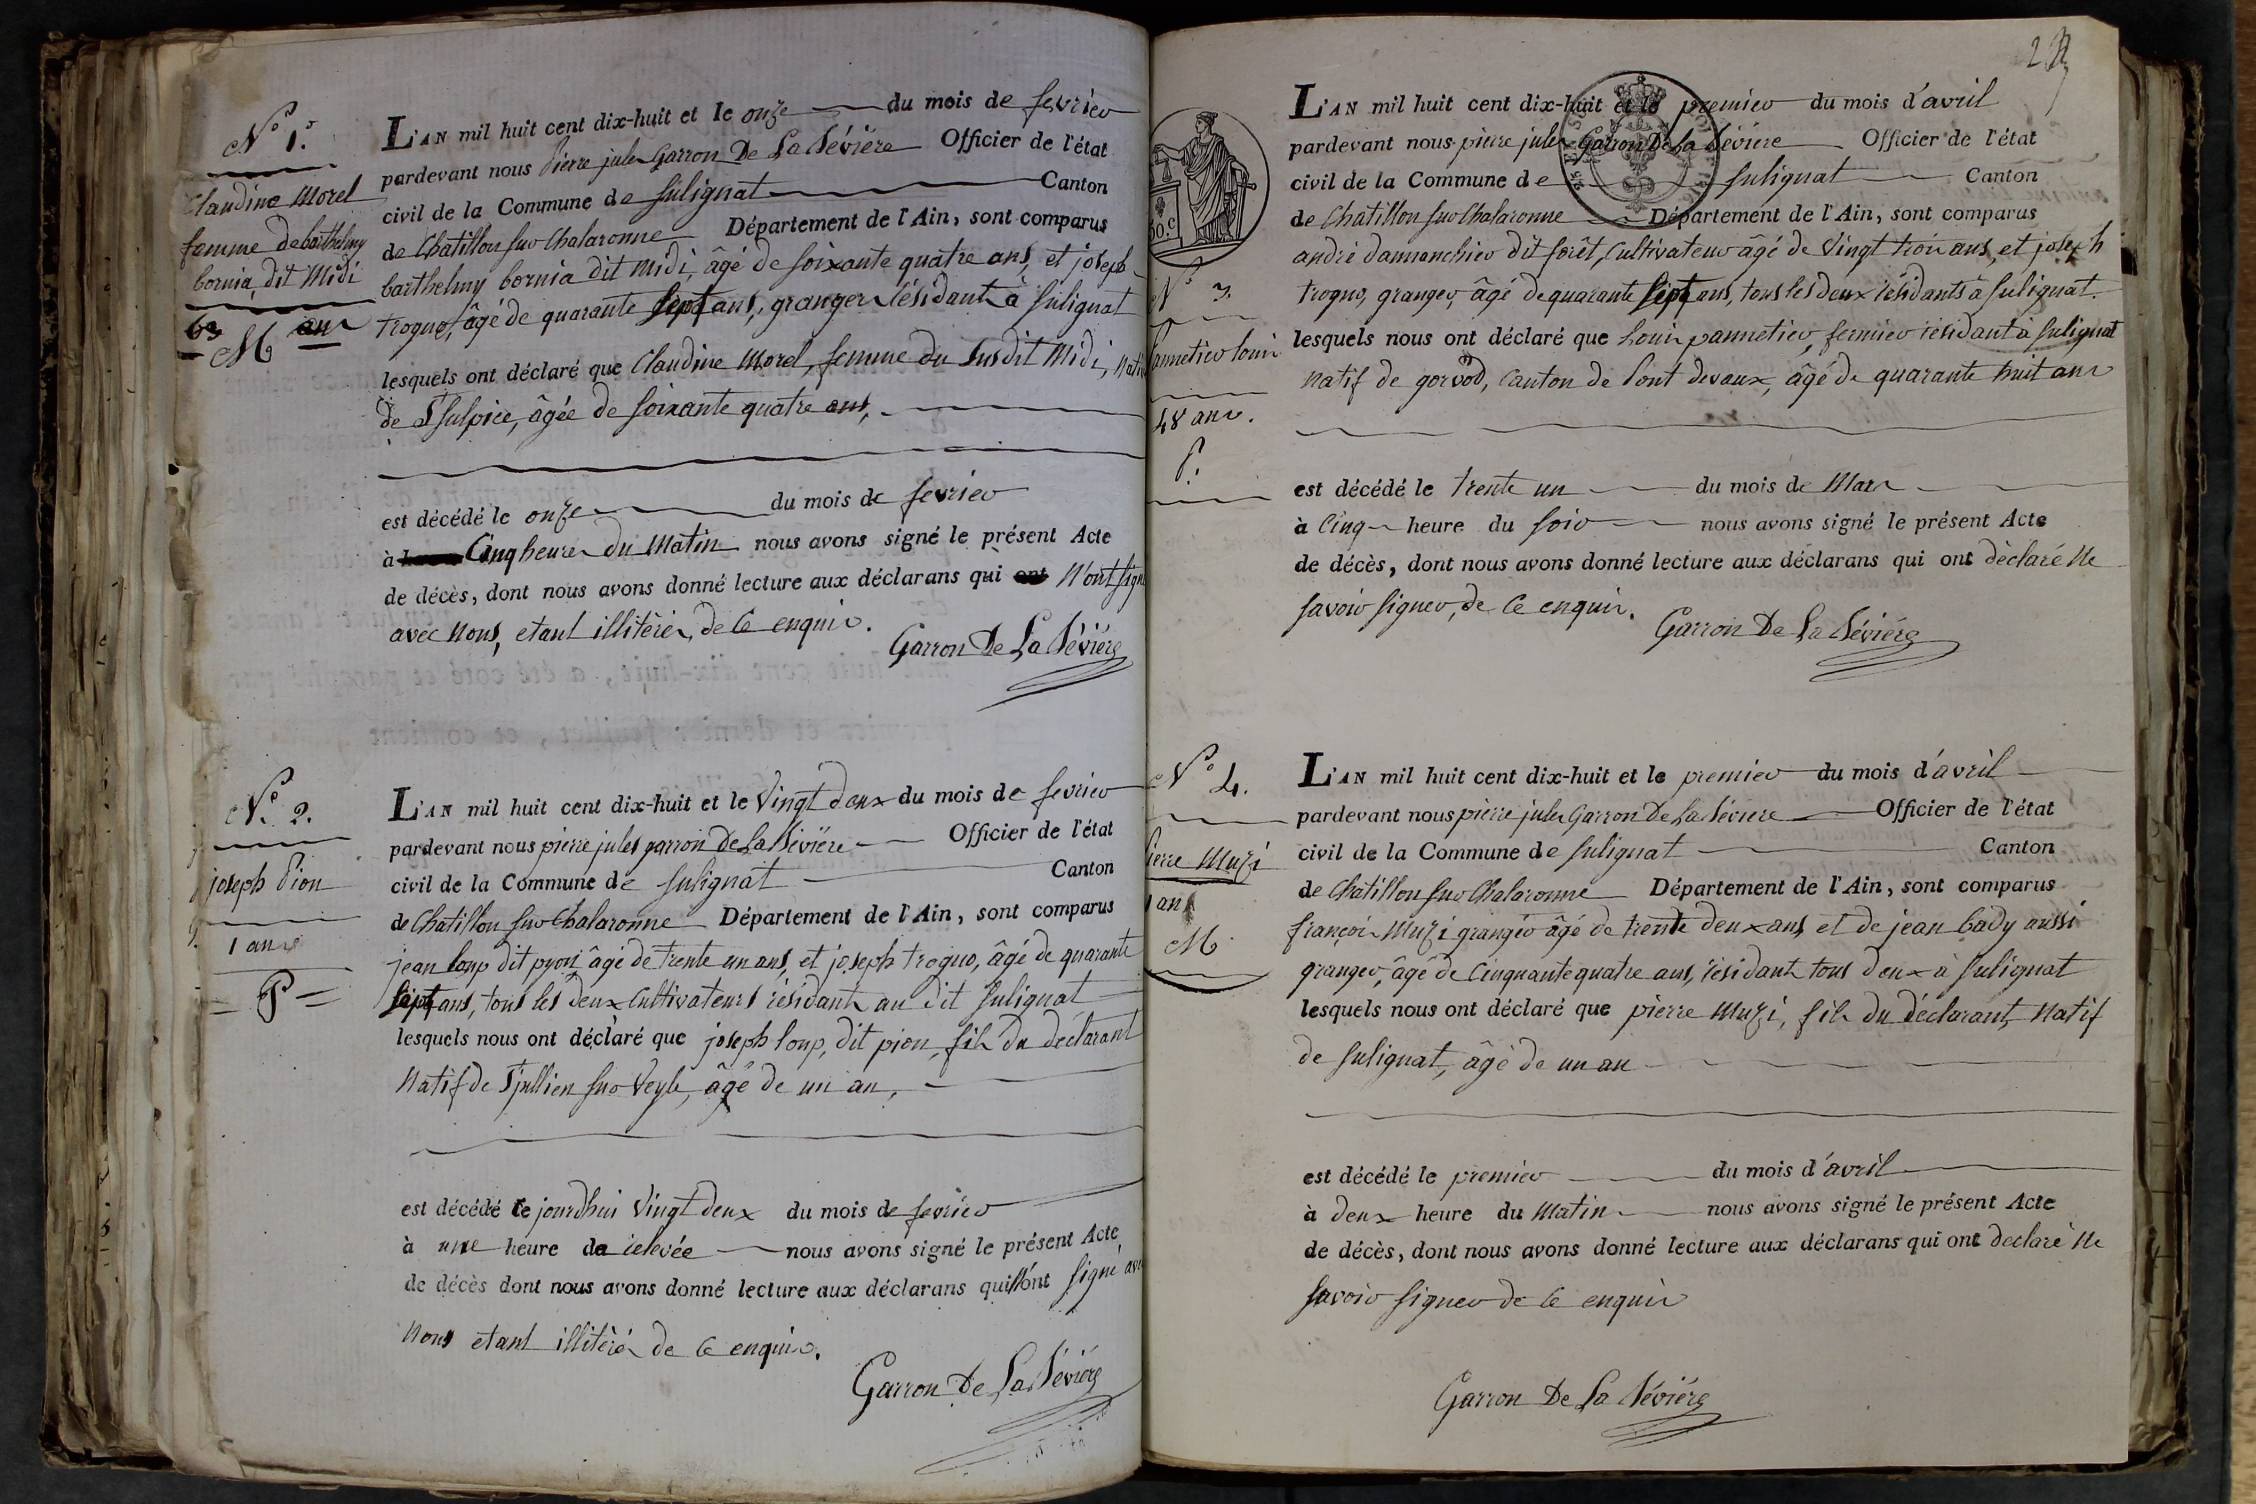 N.o 1.o
Claudine Morel
femme de barthelmy
bornia, dit Midi
63 ans
M
L'AN mil huit cent dix-huit et le onze du mois de fevrier
pardevant nous Pierre jules Garron De La Sévière Officier de l'état
civil de la Commune de Sulignat Canton
de Chatillon sur Chalaronne Département de l'Ain, sont comparus
barthelmy bornia dit Midi, âgé de soixante quatre ans, et joseph
troguo, âgé de quarante sept ans, granger résidants à Sulignat
lesquels ont déclaré que Claudine Morel, femme du Susdit Midi, nativ
de St Sulpice, âgée de soixante quatre ans,
est décédé le onze du mois de fevrier
à Cinq heures du Matin nous avons signé le présent Acte
de décès, dont nous avons donné lecture aux déclarans qui ont N'ont signé
avec Nous, etant illitèrés, de ce enquis.
Garron De La Sévière
N.o 2.
joseph Pion
1 ans
P
L'AN mil huit cent dix-huit et le Vingt deux du mois de fevrier
pardevant nous pierre jules garron De La Sévière Officier de l'état
civil de la Commune de Sulignat Canton
de Chatillon sur Chalaronne Département de l'Ain, sont comparus
jean loup dit pyon âgé de trente un ans, et joseph troguo, âgé de quarante
sept ans, tous les deux Cultivateurs résidants au dit Sulignat
lesquels nous ont déclaré que joseph loup, dit pion, fils du déclarant
Natif de St jullien sur Veyle, âgé de un an,
est décédé ce jourdhui Vingt deux du mois de fevrier
à une heure de relevée nous avons signé le présent Acte
de décès dont nous avons donné lecture aux déclarans qui N'ont signé avec
Nous etant illitèrés de ce enquis.
Garron De La Sévière
50.c
N.o 3.
Pannetier louis
48 ans.
P.
L'AN mil huit cent dix-huit et le premier du mois d'avril
pardevant nous pierre jules Garron De La Sévière Officier de l'état
civil de la Commune de Sulignat Canton
de Chatillon sur Chalaronne Département de l'Ain, sont comparus
andré dananchier dit forêt, Cultivateur âgé de Vingt trois ans, et joseph
troguo, granger, âgé de quarante sept ans, tous les deux résidants à Sulignat.
lesquels nous ont déclaré que Louis pannetier, fermier résidant à Sulignat
Natif de gorvod, Canton de Pont devaux, âgé de quarante huit ans
est décédé le trente un du mois de Mars
à Cinq heure du soir nous avons signé le présent Acte
de décès, dont nous avons donné lecture aux déclarans qui ont dèclaré Ne
savoir signer, de ce enquis.
Garron De La Sévière
N.o 4.
Pierre Muzi
1 an
M.
L'AN mil huit cent dix-huit et le premier du mois d'avril
pardevant nous pierre jules Garron De La Sévière Officier de l'état
civil de la Commune de Sulignat Canton
de Chatillon sur Chalaronne Département de l'Ain, sont comparus
françois Muzi granger âgé de trente deux ans, et de jean bady aussi
granger, âgé de Cinquante quatre ans, résidants tous deux à Sulignat
lesquels nous ont déclaré que pierre Muzi, fils du déclarant, Natif
de Sulignat, âgé de un an
est décédé le premier du mois d'avril
à deux heure du Matin nous avons signé le présent Acte
de décès, dont nous avons donné lecture aux déclarans qui ont declaré Ne
savoir signer de ce enquis
Garron De La Sévière